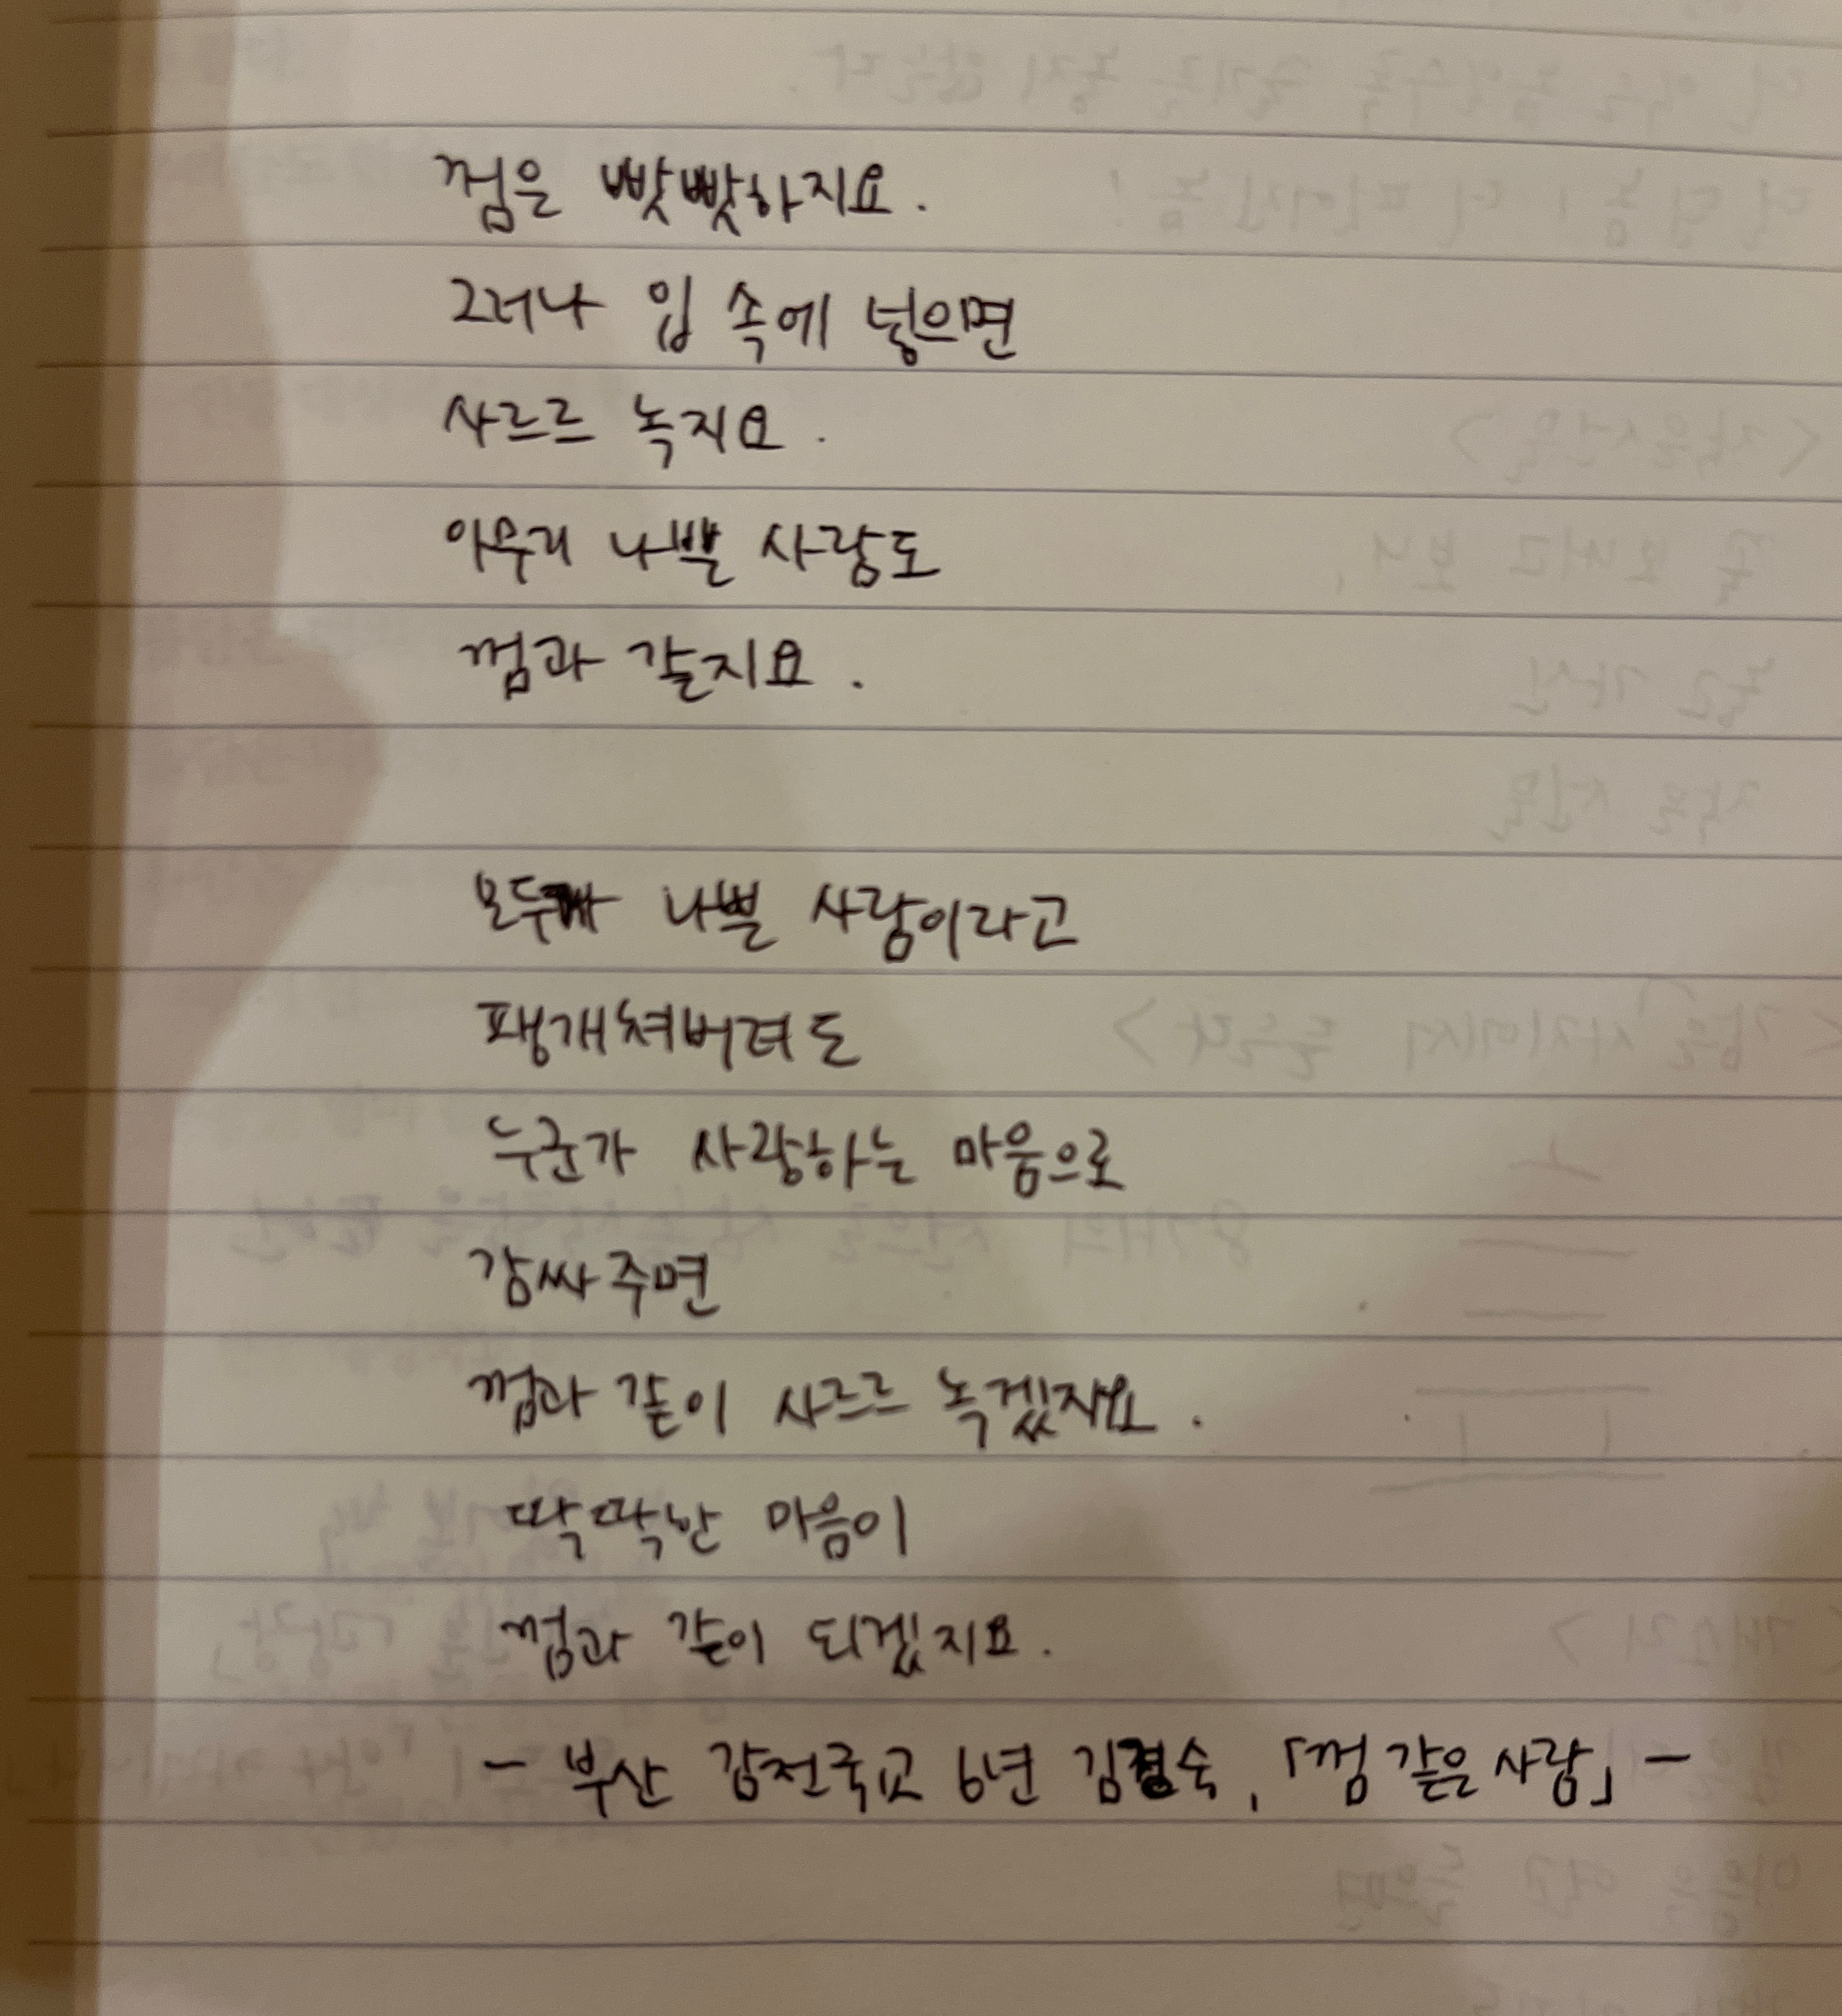 껌은 빳빳하지요.
그러나 입 속에 넣으면
사르르 녹지요.
아무리 나쁜 사람도
껌과 같지요.
모두가 나쁜 사람이라고
팽개쳐버려도
누군가 사랑하는 마음으로
감싸주면
껌과 같이 사르르 녹겠지요.
딱딱한 마음이
껌과 같이 되겠지요.
- 부산 감전국교 6년 김경숙, 「껌 같은 사람」 -